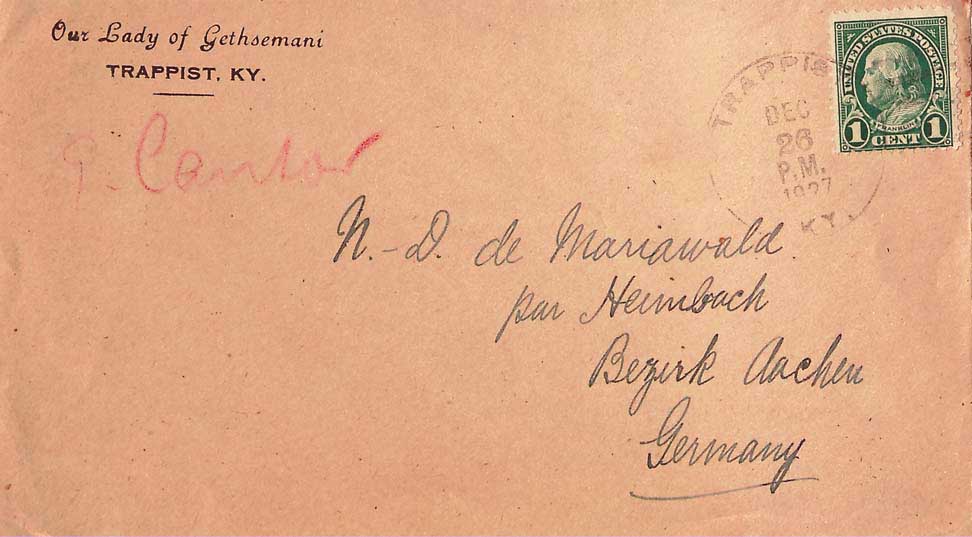 Our Lady of Gethsemani
TRAPPIST, KY.
UNITED STATES POSTAGE
FRANKLIN
1 CENT 1
TRAPPIS
DEC
26
P.M.
1927
KY.
P. Cantor
N.-D. de Mariawald
par Heimbach
Bezirk Aachen
Germany